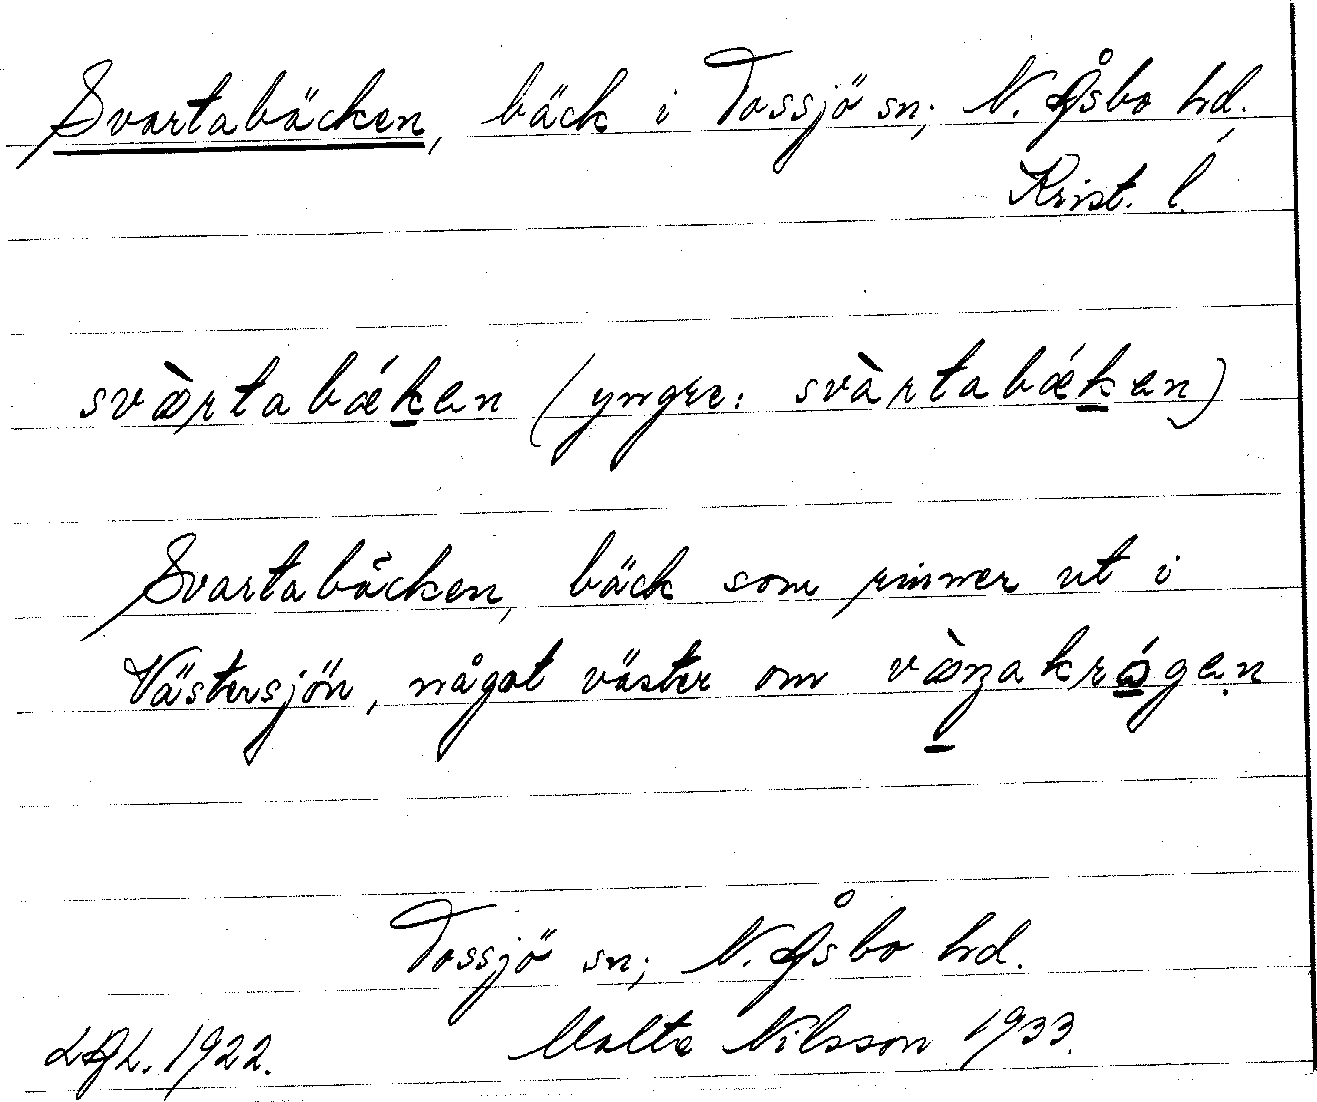 Svartabäcken, bäck i Tossjö sn; N. Åsbo hd.
Krist. l.
svæ̀rtabǽken (yngre: svàrtabǽken)
Svartabäcken, bäck som rinner ut i
Västersjön, något väster om
Tossjö sn; N. Åsbo hd.
LAL. 1922. Malte Nilsson 1933.